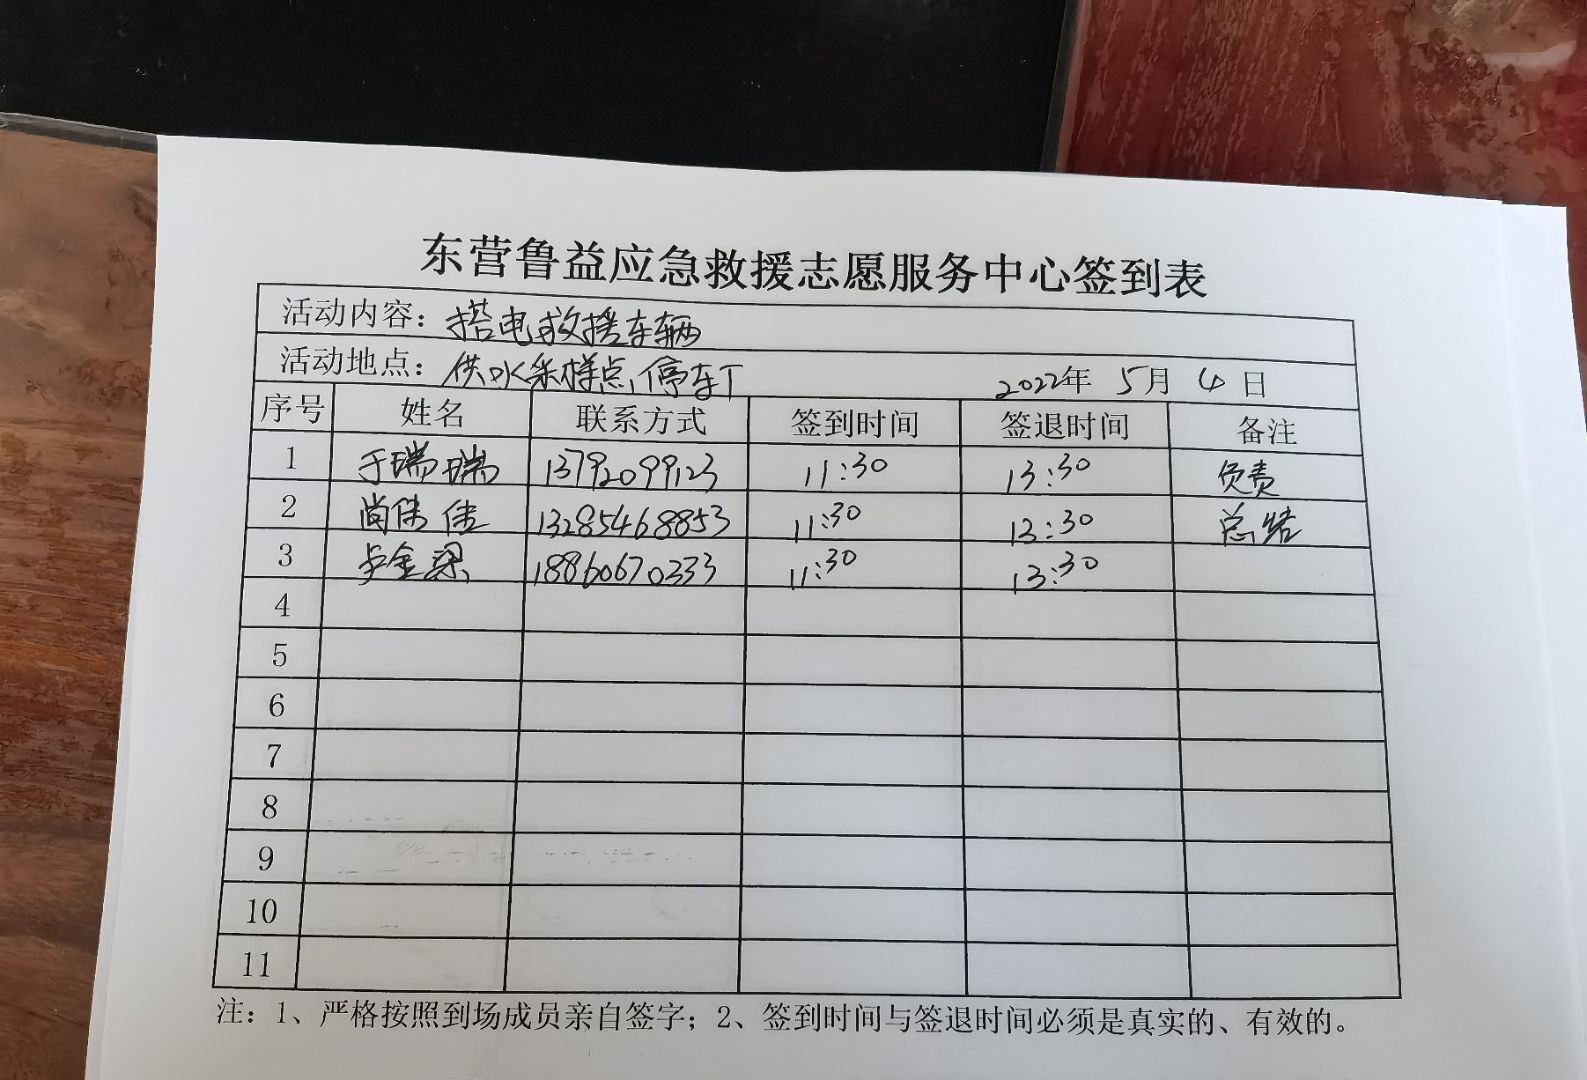 东营鲁益应急救援志愿服务中心签到表
活动内容：搭电救援车辆
活动地点：供水采样点，停车丁 2022年 5月 4日
序号 姓名 联系方式 签到时间 签退时间 备注
1 于瑞瑞 13792099123 11:30 13:30 负责
2 尚伟佳 13285468853 11:30 13:30 总结
3 金梁 18860670333 11:30 13:30
4
5
6
7
8
9
10
11
注：1、严格按照到场成员亲自签字；2、签到时间与签退时间必须是真实的、有效的。